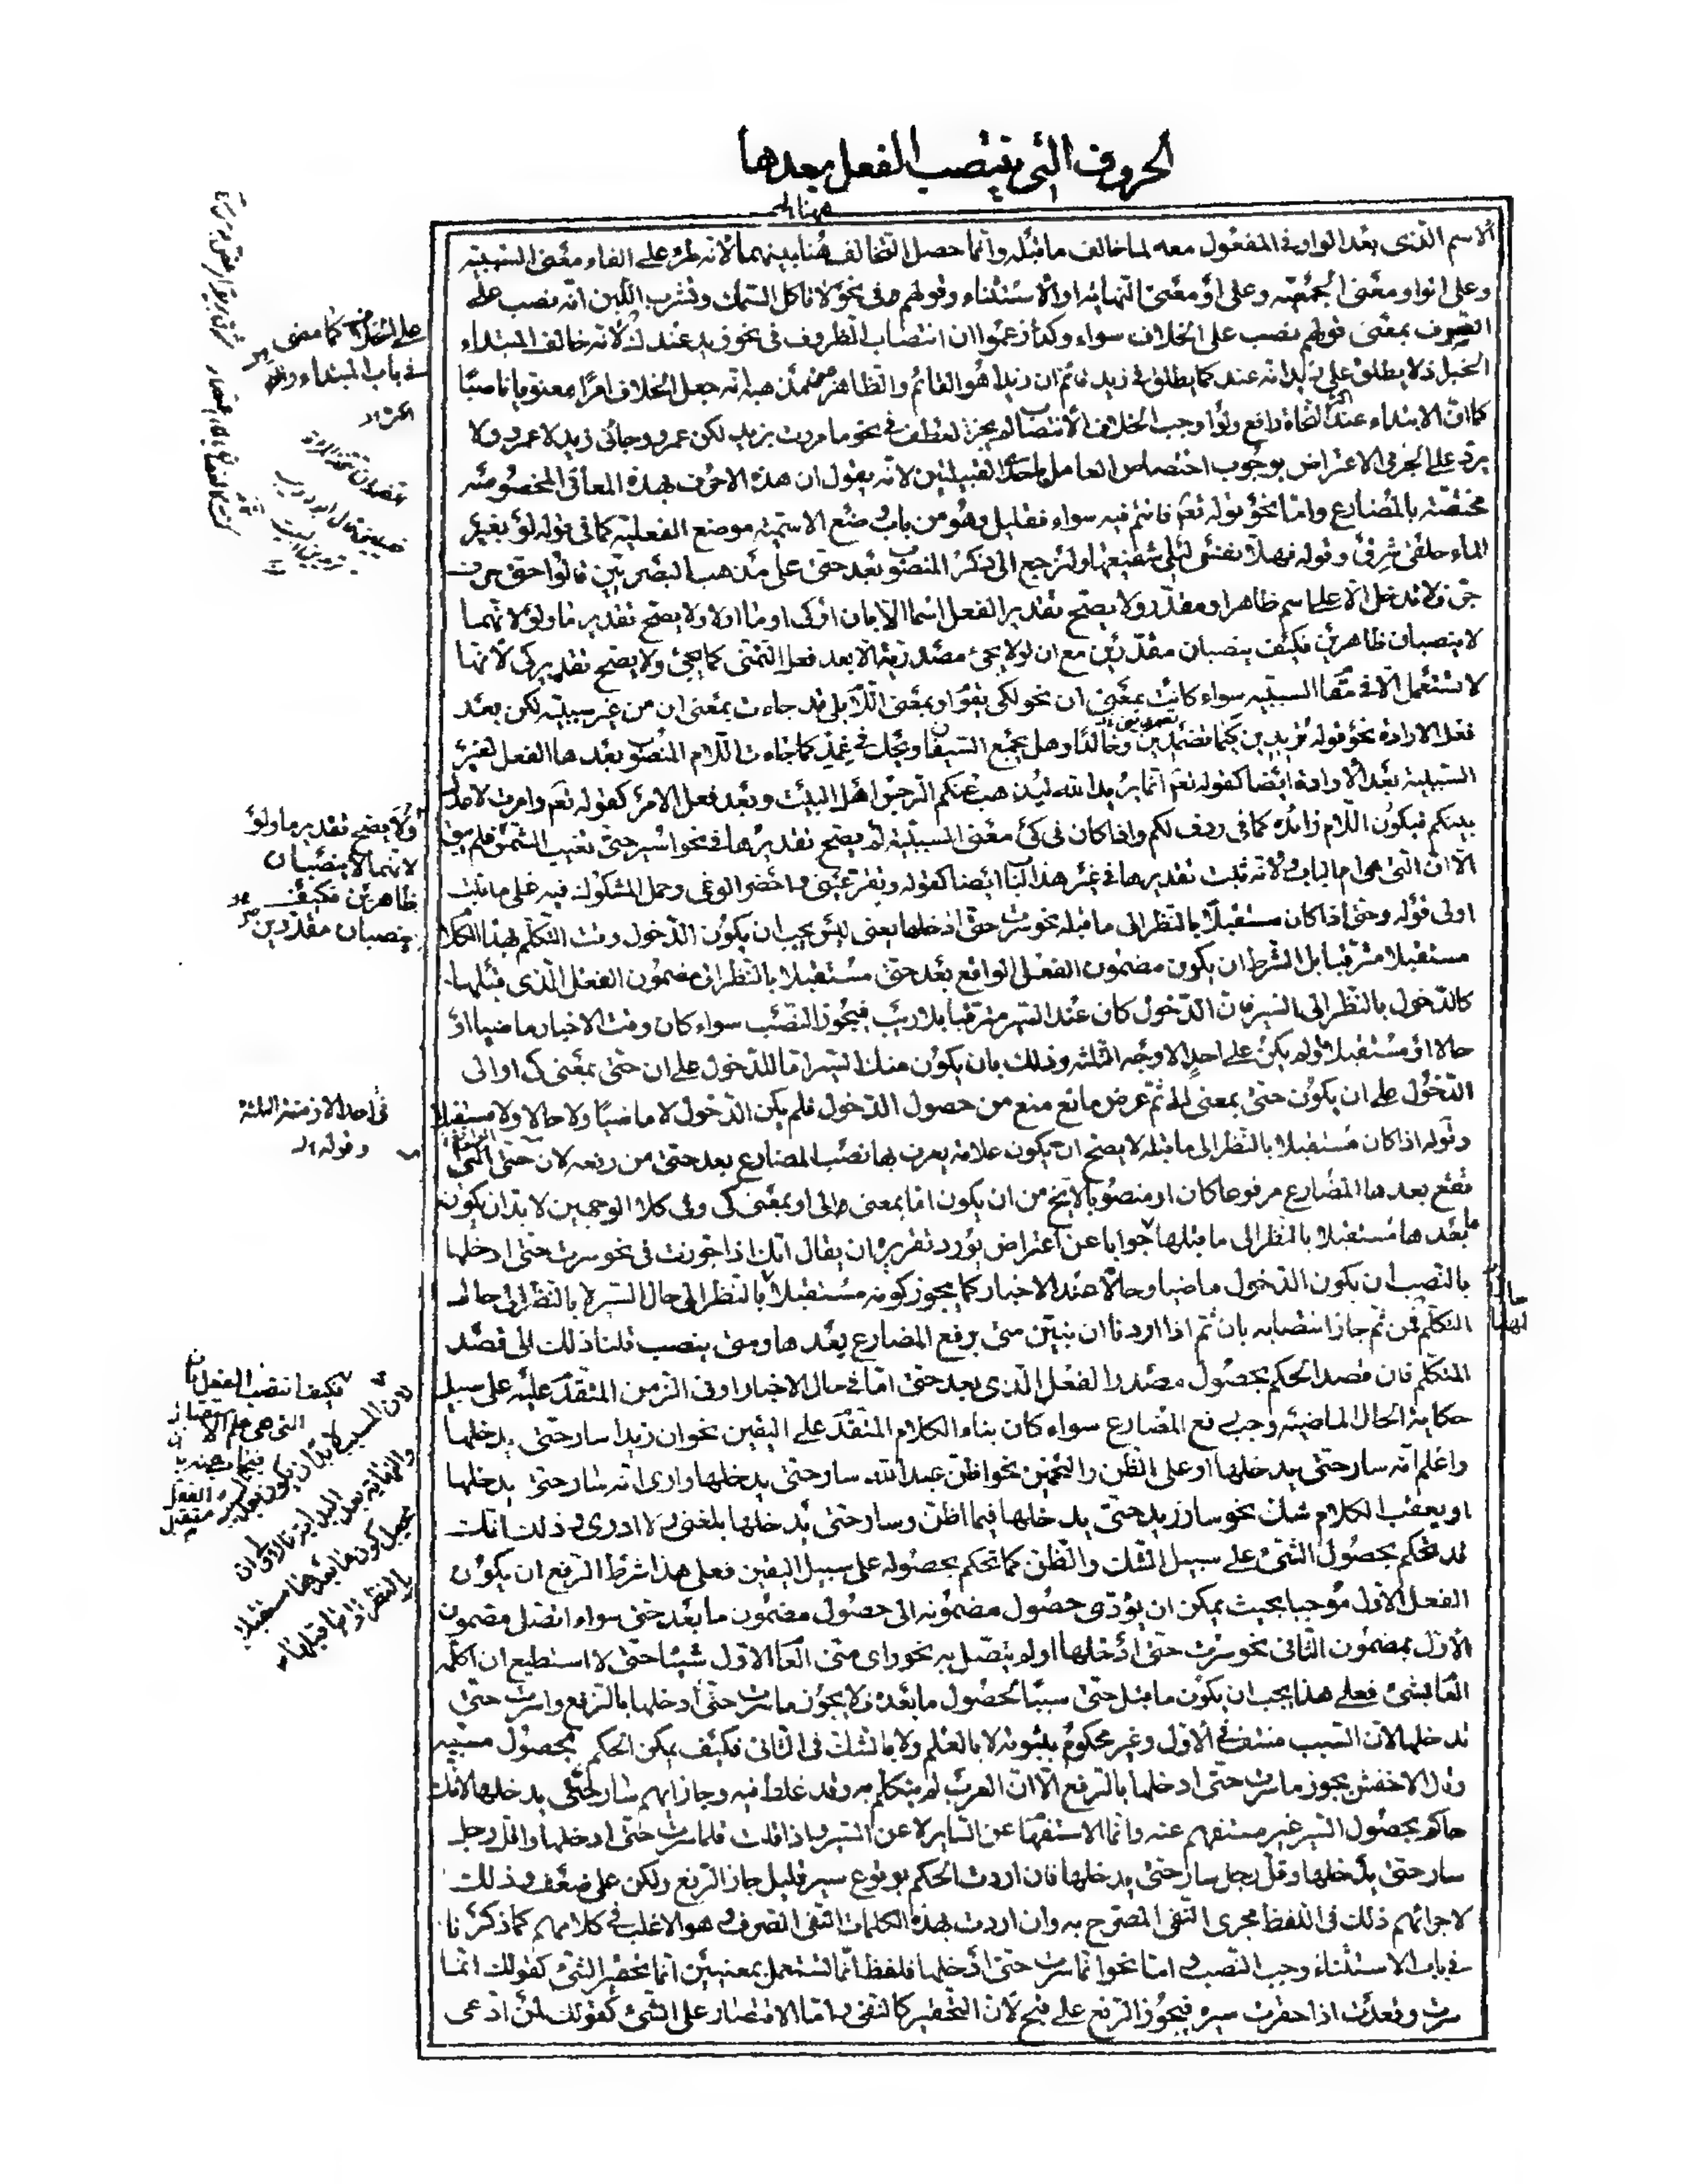 الحروف التى ينتصب الفعل بعدها
الاسم الذى بعد الواو فى المفعول معه لما خالف ما قبله وانما حصل التخالف هنا بينهما لانه طرء على الفاء معنى السببية
وعلى الواو معنى الجمعية وعلى او معنى النهاية او الاستثناء وقولهم فى نحو لا تاكل السمك وتشرب اللبن انه نصب على
الصرف بمعنى قولهم نصب على الخلاف سواء وكذا زعموا ان انتصاب الظروف فى نحو زيد عندك لانه خالف المبتداء
الخبر اذ لا يطلق على زيد انه عند كما يطلق فى زيد قائم ان زيدا هو القائم والظاهر من مذهبه انه جعل الخلاف امرا معنويا ناصبا
كما ان الابتداء عند النحاة رافع ولو اوجب الخلاف الانتصاب لم يجز العطف فى نحو ما مررت بزيد لكن عمرو وجائى زيد لا عمرو ولا
يرد على الجرمى الاعتراض بوجوب اختصاص العامل باحد القبيلتين لانه يقول ان هذه الاحرف بهذه المعانى المخصوصة
مختصة بالمضارع واما نحو قوله تعم فانتم فيه سواء فقليل وهو من باب وضع الاسمية موضع الفعلية كما فى قوله لو بغير
الماء حلقى شرق وقوله فهلا نفس ليلى شفيعها ولنرجع الى ذكر المنصوب بعد حتى على مذهب البصريين قالوا حتى حرف
جر فلا تدخل الا على اسم ظاهر او مقدر ولا يصح تقدير الفعل اسما الا بان او كى او ما او لو ولا يصح تقدير ما ولو لانهما
لا ينصبان ظاهرين فكيف ينصبان مقدرين مع ان لو لا يجئ مصدرية الا بعد فعل التمنى كما يجئ ولا يصح تقدير كى لانها
لا تستعمل الا فى مقام السببية سواء كانت بمعنى ان نحو لكى يقوم او بمعنى اللام بلى قد جاءت بمعنى ان من غير سببية لكن بعد
فعل الارادة نحو قوله تريدين كيما تضمدينى وخالدا وهل يجمع السيفان ويحك فى غمد كما جاءت اللام المنصوب بعدها الفعل لغير
السببية بعد الارادة ايضا كقوله تعم انما يريد الله ليذهب عنكم الرجس اهل البيت وبعد فعل الامر كقوله تعم وامرت لاعدل
بينكم فيكون اللام زائدة كما فى ردف لكم واذا كان فى كى معنى السببية لم يصح تقديرها فى نحو اسير حتى تغيب الشمس فلم يبق
الا ان التى هى ام الباب ولانه ثبت تقديرها فى غير هذا الباب ايضا كقوله وتقر عينى واحضر الوغى وحمل المشكوك فيه على ما ثبت
اولى قوله وحتى اذا كان مستقبلا بالنظر الى ما قبله نحو سرت حتى ادخلها يعنى ليس يجب ان يكون الدخول وقت التكلم بهذا الكلام
مستقبلا مترقبا بل الشرط ان يكون مضمون الفعل الواقع بعد حتى مستقبلا بالنظر الى مضمون الفعل الذى قبلها
كالدخول بالنظر الى السير فان الدخول كان عند السير مترقبا بلا ريب فيجوز النصب سواء كان وقت الاخبار ماضيا او
حالا او مستقبلا ولم يكن على احد الاوجه الثلثة وذلك بان يكون منك السير اما للدخول على ان حتى بمعنى كى او الى
الدخول على ان يكون حتى بمعنى الى ثم عرض مانع منع من حصول الدخول فلم يكن الدخول لا ماضيا ولا حالا ولا مستقبلا
وقوله اذا كان مستقبلا بالنظر الى ما قبله لا يصح ان يكون علامة يعرف بها نصب المضارع بعد حتى من رفعه لان حتى التى
تقع بعدها المضارع مرفوعا كان او منصوبا لا يخ من ان يكون اما بمعنى الى او بمعنى كى وفى كلا الوجهين لا بد ان يكون
ما بعدها مستقبلا بالنظر الى ما قبلها جوابا عن اعتراض يورد تقريره ان يقال انك اذا جوزت فى نحو سرت حتى ادخلها
بالنصب ان يكون الدخول ماضيا وحالا عند الاخبار كما يجوز كونه مستقبلا بالنظر الى حال السير لا بالنظر الى حال
التكلم فمن ثم جاز انتصابه بان ثم اذا اردنا ان نبين متى يرفع المضارع بعدها ومتى ينصب قلنا ذلك الى قصد
المتكلم فان قصد الحكم بحصول مصدر الفعل الذى بعد حتى اما فى حال الاخبار او فى الزمن المتقدم عليه على سبيل
حكاية الحال الماضية وجب رفع المضارع سواء كان بناء الكلام المتقدم على اليقين نحو ان زيدا سار حتى يدخلها
واعلم انه سار حتى يدخلها او على الظن والتخمين نحو اظن عبد الله سار حتى يدخلها وارى انه سار حتى يدخلها
او يعقب الكلام شك نحو سار زيد حتى يدخلها فيما اظن وسار حتى يدخلها بلغنى ولا ادرى وذلك انك
قد تحكم بحصول الشئ على سبيل الشك والظن كما تحكم بحصوله على سبيل اليقين فعلى هذا شرط الرفع ان يكون
الفعل الاول موجبا بحيث يمكن ان يؤدى حصول مضمونه الى حصول مضمون ما بعد حتى سواء اتصل مضمون
الاول بمضمون الثانى نحو سرت حتى ادخلها او لم يتصل به نحو راى منى العام الاول شيئا حتى لا استطيع ان اكلمه
العام بشئ فعلى هذا يجب ان يكون ما قبل حتى سببا لحصول ما بعده فلا يجوز ما سرت حتى ادخلها بالرفع واسرت حتى
تدخلها لان السبب منتف فى الاول وغير محكوم بثبوته لا بالعلم ولا بالشك فى الثانى فكيف يمكن الحكم بحصول مسببه
وقال الاخفش يجوز ما سرت حتى ادخلها بالرفع الا ان العرب لم يتكلم به وقد غلط فيه وجاز ايهم سار حتى يدخلها لانك
حاكم بحصول السير غير مستفهم عنه وانما الاستفهام عن السائر لا عن السير واذا قلت قلما سرت حتى ادخلها واقل رجل
سار حتى يدخلها وقل رجل سار حتى يدخلها فان اردت الحكم بوقوع سير قليل جاز الرفع ولكن على ضعف وذلك
لاجرائهم ذلك فى اللفظ مجرى النفى المصرح به وان اردت بهذه الكلمات النفى الصرف وهو الاغلب فى كلامهم كما ذكرنا
فى باب الاستثناء وجب النصب واما نحو انما سرت حتى ادخلها فلفظ انما تستعمل بمعنيين اما تحقير الشئ كقولك انما
سرت وقعدت اذا حقرت سيره فيجوز الرفع على قبح لان التحقير كالنفى واما الاقتصار على الشئ كقولك لمن ادعى
على الخلاف كما مضى
فى باب المبتداء
ولا يصح تقدير ما ولو
لانهما لا ينصبان
ظاهرين فكيف
ينصبان مقدرين
فى احد الازمنة الثلثة
وقوله
فكيف انتصب الفعل بان
التى هى علم الاستقبال
لان المسبب لا بد ان يكون بعد السبب
والنهاية بعد البداية
بالنظر الى ما قبلها